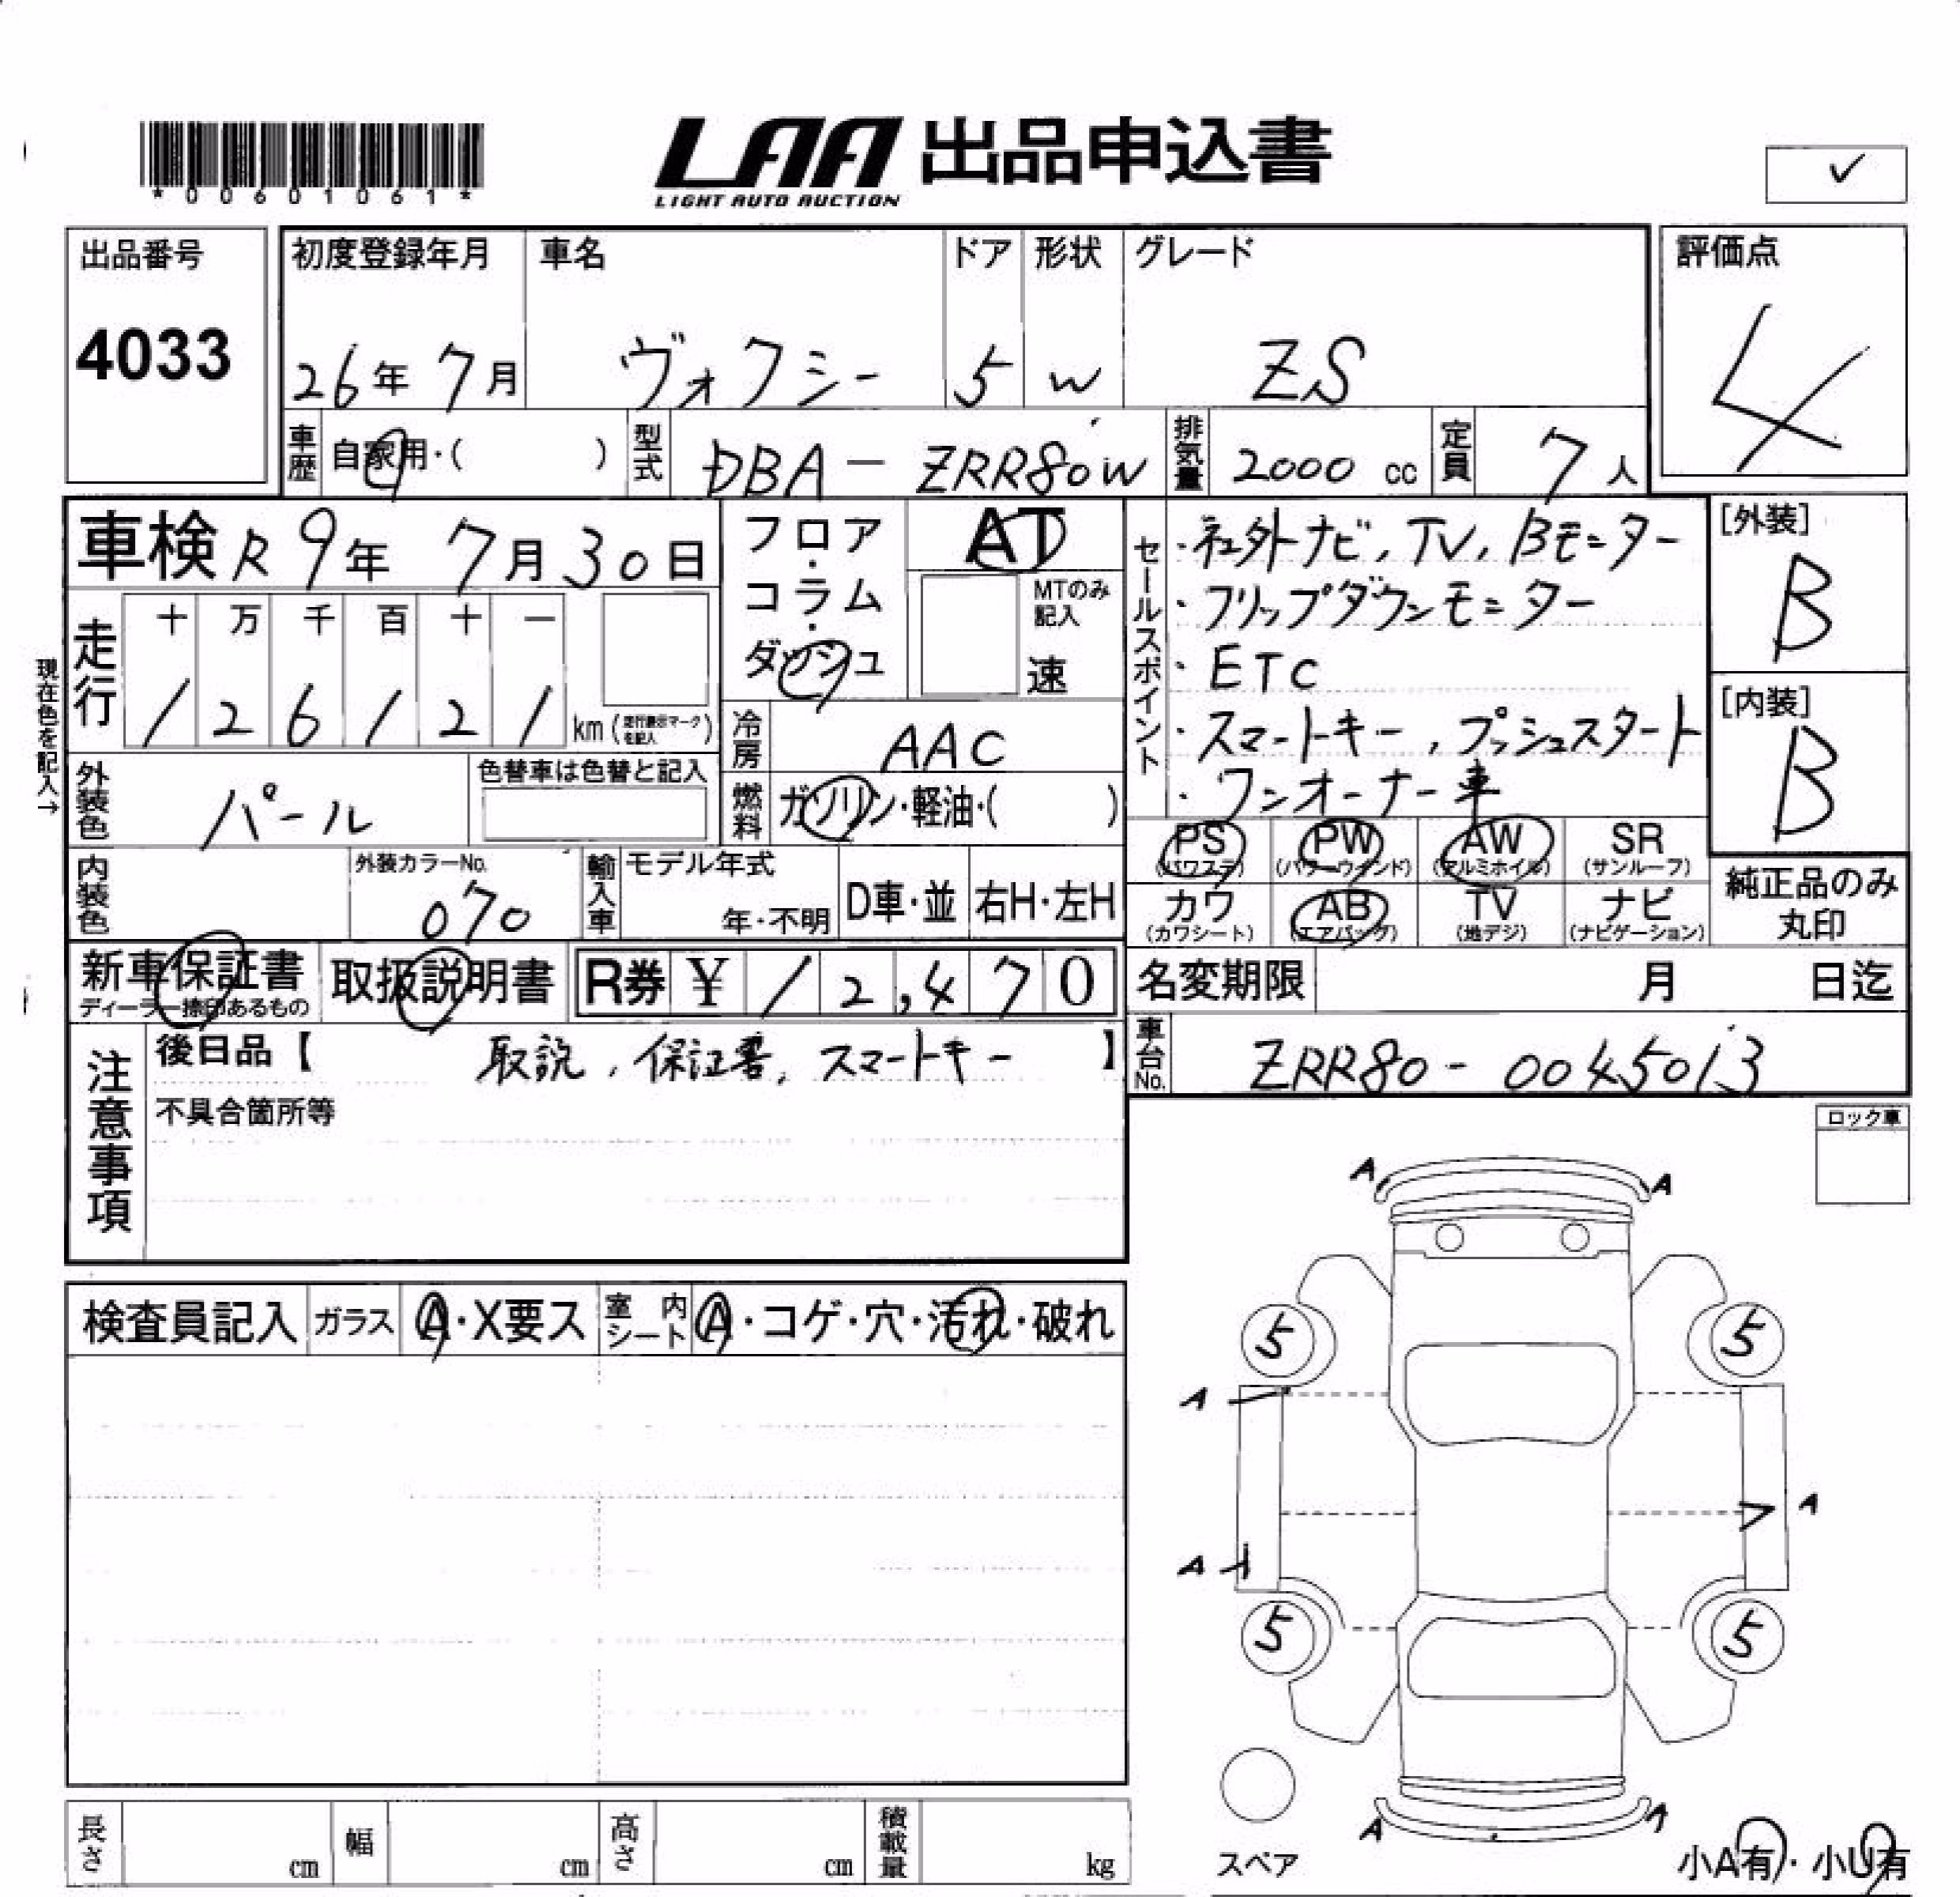 *00601061*
LAA 出品申込書
LIGHT AUTO AUCTION
✓
出品番号
4033
初度登録年月
26年 7月
車名
ヴォクシー
ドア
5
形状
W
グレード
ZS
評価点
4
車歴
自家用・( )
型式
DBA-ZRR80W
排気量
2000 cc
定員
7人
車検 R9年 7月30日
フロア・コラム・ダッシュ
AT
MTのみ記入
速
セールスポイント
・社外ナビ,TV,Bモニター
・フリップダウンモニター
・ETC
・スマートキー,プッシュスタート
・ワンオーナー車
[外装]
B
[内装]
B
現在色を記入→
走行
十 万 千 百 十 一
1 2 6 1 2 1 km (走行表示マークを記入)
冷房
AAC
外装色
パール
色替車は色替と記入
燃料
ガソリン・軽油・( )
PS
(パワステ)
PW
(パワーウインド)
AW
(アルミホイル)
SR
(サンルーフ)
内装色
外装カラーNo.
070
輸入車
モデル年式
年・不明
D車・並
右H・左H
カワ
(カワシート)
AB
(エアバッグ)
TV
(地デジ)
ナビ
(ナビゲーション)
純正品のみ
丸印
新車保証書
ディーラー捺印あるもの
取扱説明書
R券 ¥ 12,470
名変期限 月 日迄
注意事項
後日品【 取説,保証書,スマートキー 】
不具合箇所等
車台No.
ZRR80-0045013
ロック車
A A
5 5
A
A
A
5 5
A A
検査員記入
ガラス
A・X要ス
室内シート
A・コゲ・穴・汚れ・破れ
長さ cm
幅 cm
高さ cm
積載量 kg
スペア
小A有・小U有